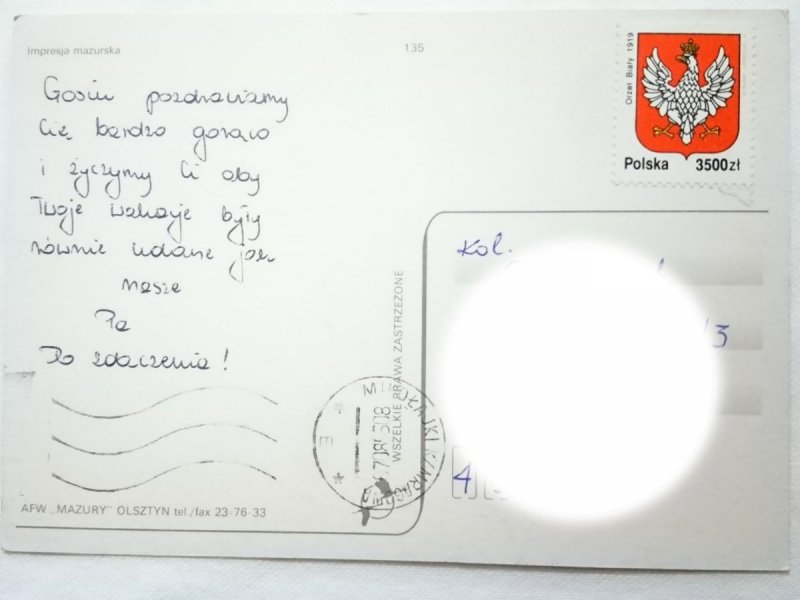 Impresja mazurska
135
Orzeł Biały 1919
Polska 3500zł
Gosiu pozdrawiamy
Cię bardzo gorąco
i życzymy Ci aby
Twoje wakacje były
równie udane jak
nasze
Pa
Do zobaczenia!
Kol.
/3
4
WSZELKIE PRAWA ZASTRZEŻONE
MIKOŁAJKI K/MRĄGOWA
AFW „MAZURY" OLSZTYN tel./fax 23-76-33